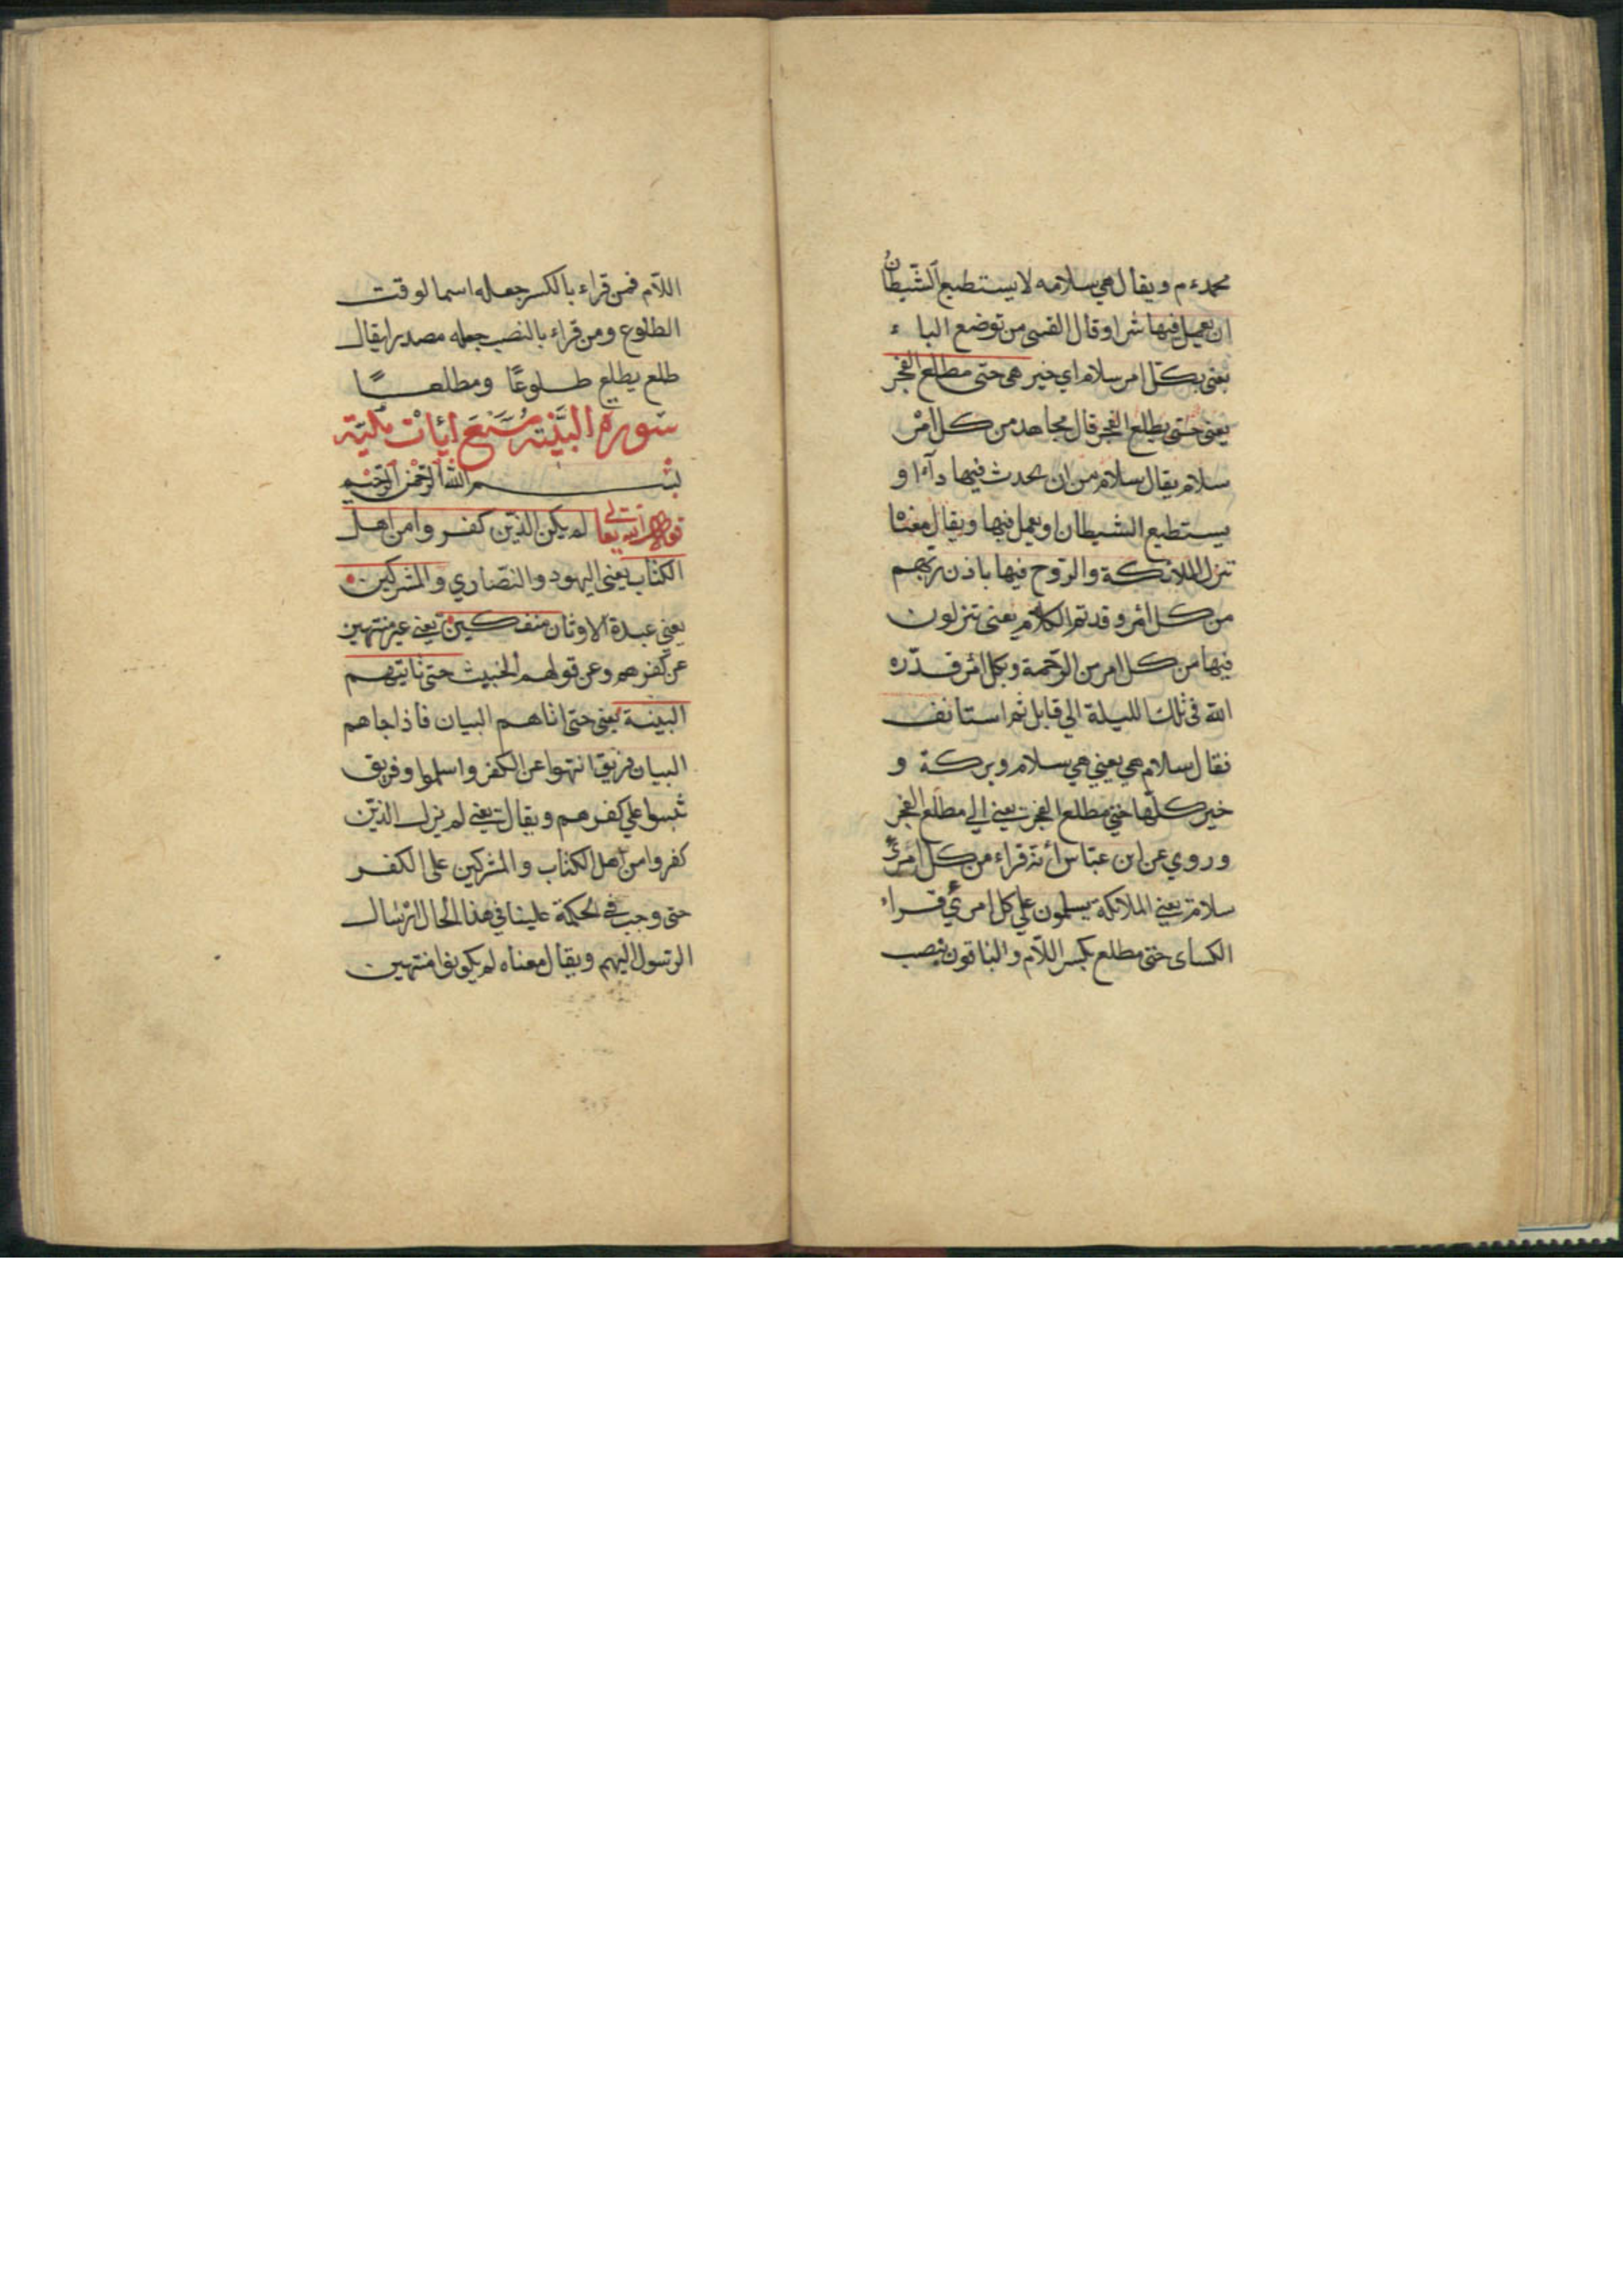 محمد ءم ويقال هي سلامه لا يستطيع الشّيطانُ
ان يعمل فيها شرا وقال القسى من توضع الباء
يعنى بكل امر سلام اي خير هى حتى مطلع الفجر
يعنى حتى يطلع الفجر قال مجاهد من كل امْر
سلام يقال سلام من ان يحدث فيها دآءا و
يستطيع الشيطان او يعمل فيها ويقال معناه
تنزل الملائكة والروح فيها باذن ربهم
من كل امر وقد تم الكلام يعنى تنزلون
فيها من كل امر من الرّحمة وبكل امر قدّره
الله فى تلك الليلة الي قابل ثم استانف
فقال سلام هي يعني هي سلام وبركة و
خير كلّها حتى مطلع الفجر يعنى الي مطلع الفجر
وروي عن ابن عبّاس أنه قراء من كل امرئٍ
سلام يعني الملائكة يسلمون علي كل امرئ قراء
الكساى حتى مطلع بكسر اللّام والباقون بنصب
اللّام فمن قراء بالكسر جعله اسما لوقت
الطلوع ومن قراء بالنصب جعله مصدرا يقال
طلع يطلع طلوعًا ومطلعًا
سورة البيّنة سبع ايات مكيّة
بسم الله الرّحمن الرّحيم
قوله تعالى لم يكن الذين كفروا من اهل
الكتاب يعنى اليهود والنصاري والمشركين
يعني عبدة الاوثان منفكين يعنى غير منتهين
عن كفرهم وعن قولهم الخبيث حتى تاتيهم
البينة يعنى حتى اتاهم البيان فاذا جاهم
البيان فريق انتهوا عن الكفر واسلموا وفريق
ثبتوا علي كفرهم ويقال يعنى لم يزل الذين
كفروا من اهل الكتاب والمشركين على الكفر
حتى وجب في الحكمة علينا في هذا الحال ارسال
الرسول اليهم ويقال معناه لم يكونوا منتهين